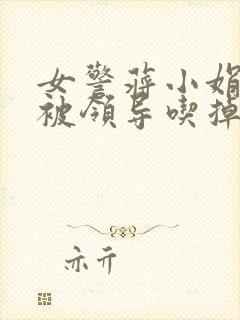 女警蒋小娟
被领导喫掉
亦亓